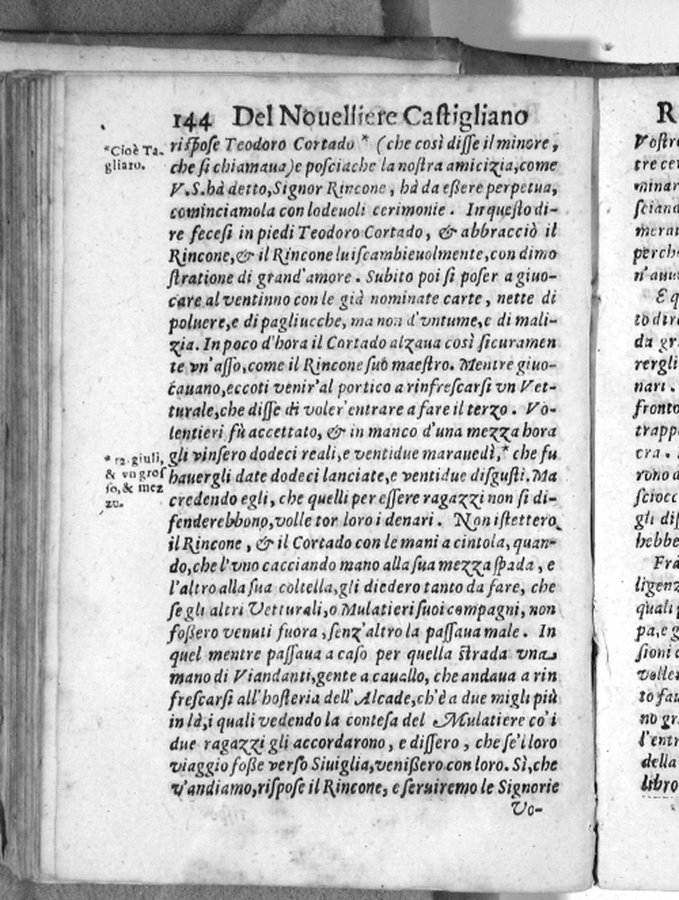 144 Del Nouelliere Castigliano
*Cioè Ta-
gliaro.
rispose Teodoro Cortado * (che così disse il minore,
che si chiamaua) e posciache la nostra amicizia, come
V.S. hà detto, Signor Rincone, hà da essere perpetua,
cominciamola con lodeuoli cerimonie. In questo di-
re fecesi in piedi Teodoro Cortado, & abbracciò il
Rincone, & il Rincone lui scambieuolmente, con dimo
stratione di grand'amore. Subito poi si poser a giuo-
care al ventinno con le già nominate carte, nette di
poluere, e di pagliucche, ma non d'vntume, e di mali-
zia. In poco d'hora il Cortado alzaua così sicuramen
te vn'asso, come il Rincone suo maestro. Mentre giuo-
cauano, eccoti venir'al portico a rinfrescarsi vn Vet-
turale, che disse di voler'entrare a fare il terzo. Vo-
lentieri fù accettato, & in manco d'una mezza hora
*12. giuli,
& vn gros
so, & mez
zo.
gli vinsero dodeci reali, e ventidue marauedì, * che fu
hauergli date dodeci lanciate, e ventidue disgusti. Ma
credendo egli, che quelli per essere ragazzi non si di-
fenderebbono, volle tor loro i denari. Non istettero
il Rincone, & il Cortado con le mani a cintola, quan-
do, che l'vno cacciando mano alla sua mezza spada, e
l'altro alla sua coltella, gli diedero tanto da fare, che
se gli altri Vetturali, o Mulatieri suoi compagni, non
fossero venuti fuora, senz'altro la passaua male. In
quel mentre passaua a caso per quella strada vna
mano di Viandanti, gente a cauallo, che andaua a rin
frescarsi all'hosteria dell'Alcade, ch'è a due migli più
in là, i quali vedendo la contesa del Mulatiere co'i
due ragazzi gli accordarono, e dissero, che se'l loro
viaggio fosse verso Siuiglia, venissero con loro. Sì, che
v'andiamo, rispose il Rincone, e seruiremo le Signorie
Vo-
R
Vostr
tre ce
minar
sciand
merau
perch
n'auu
E q
to d
da gr
rergli
nari.
fronto
trapp
cra.
rono a
sciocc
gli dis
hebbe
Frà
ligenz
quali
pa, e g
sioni
volle
to fa
no gr
l'entr
della
libro